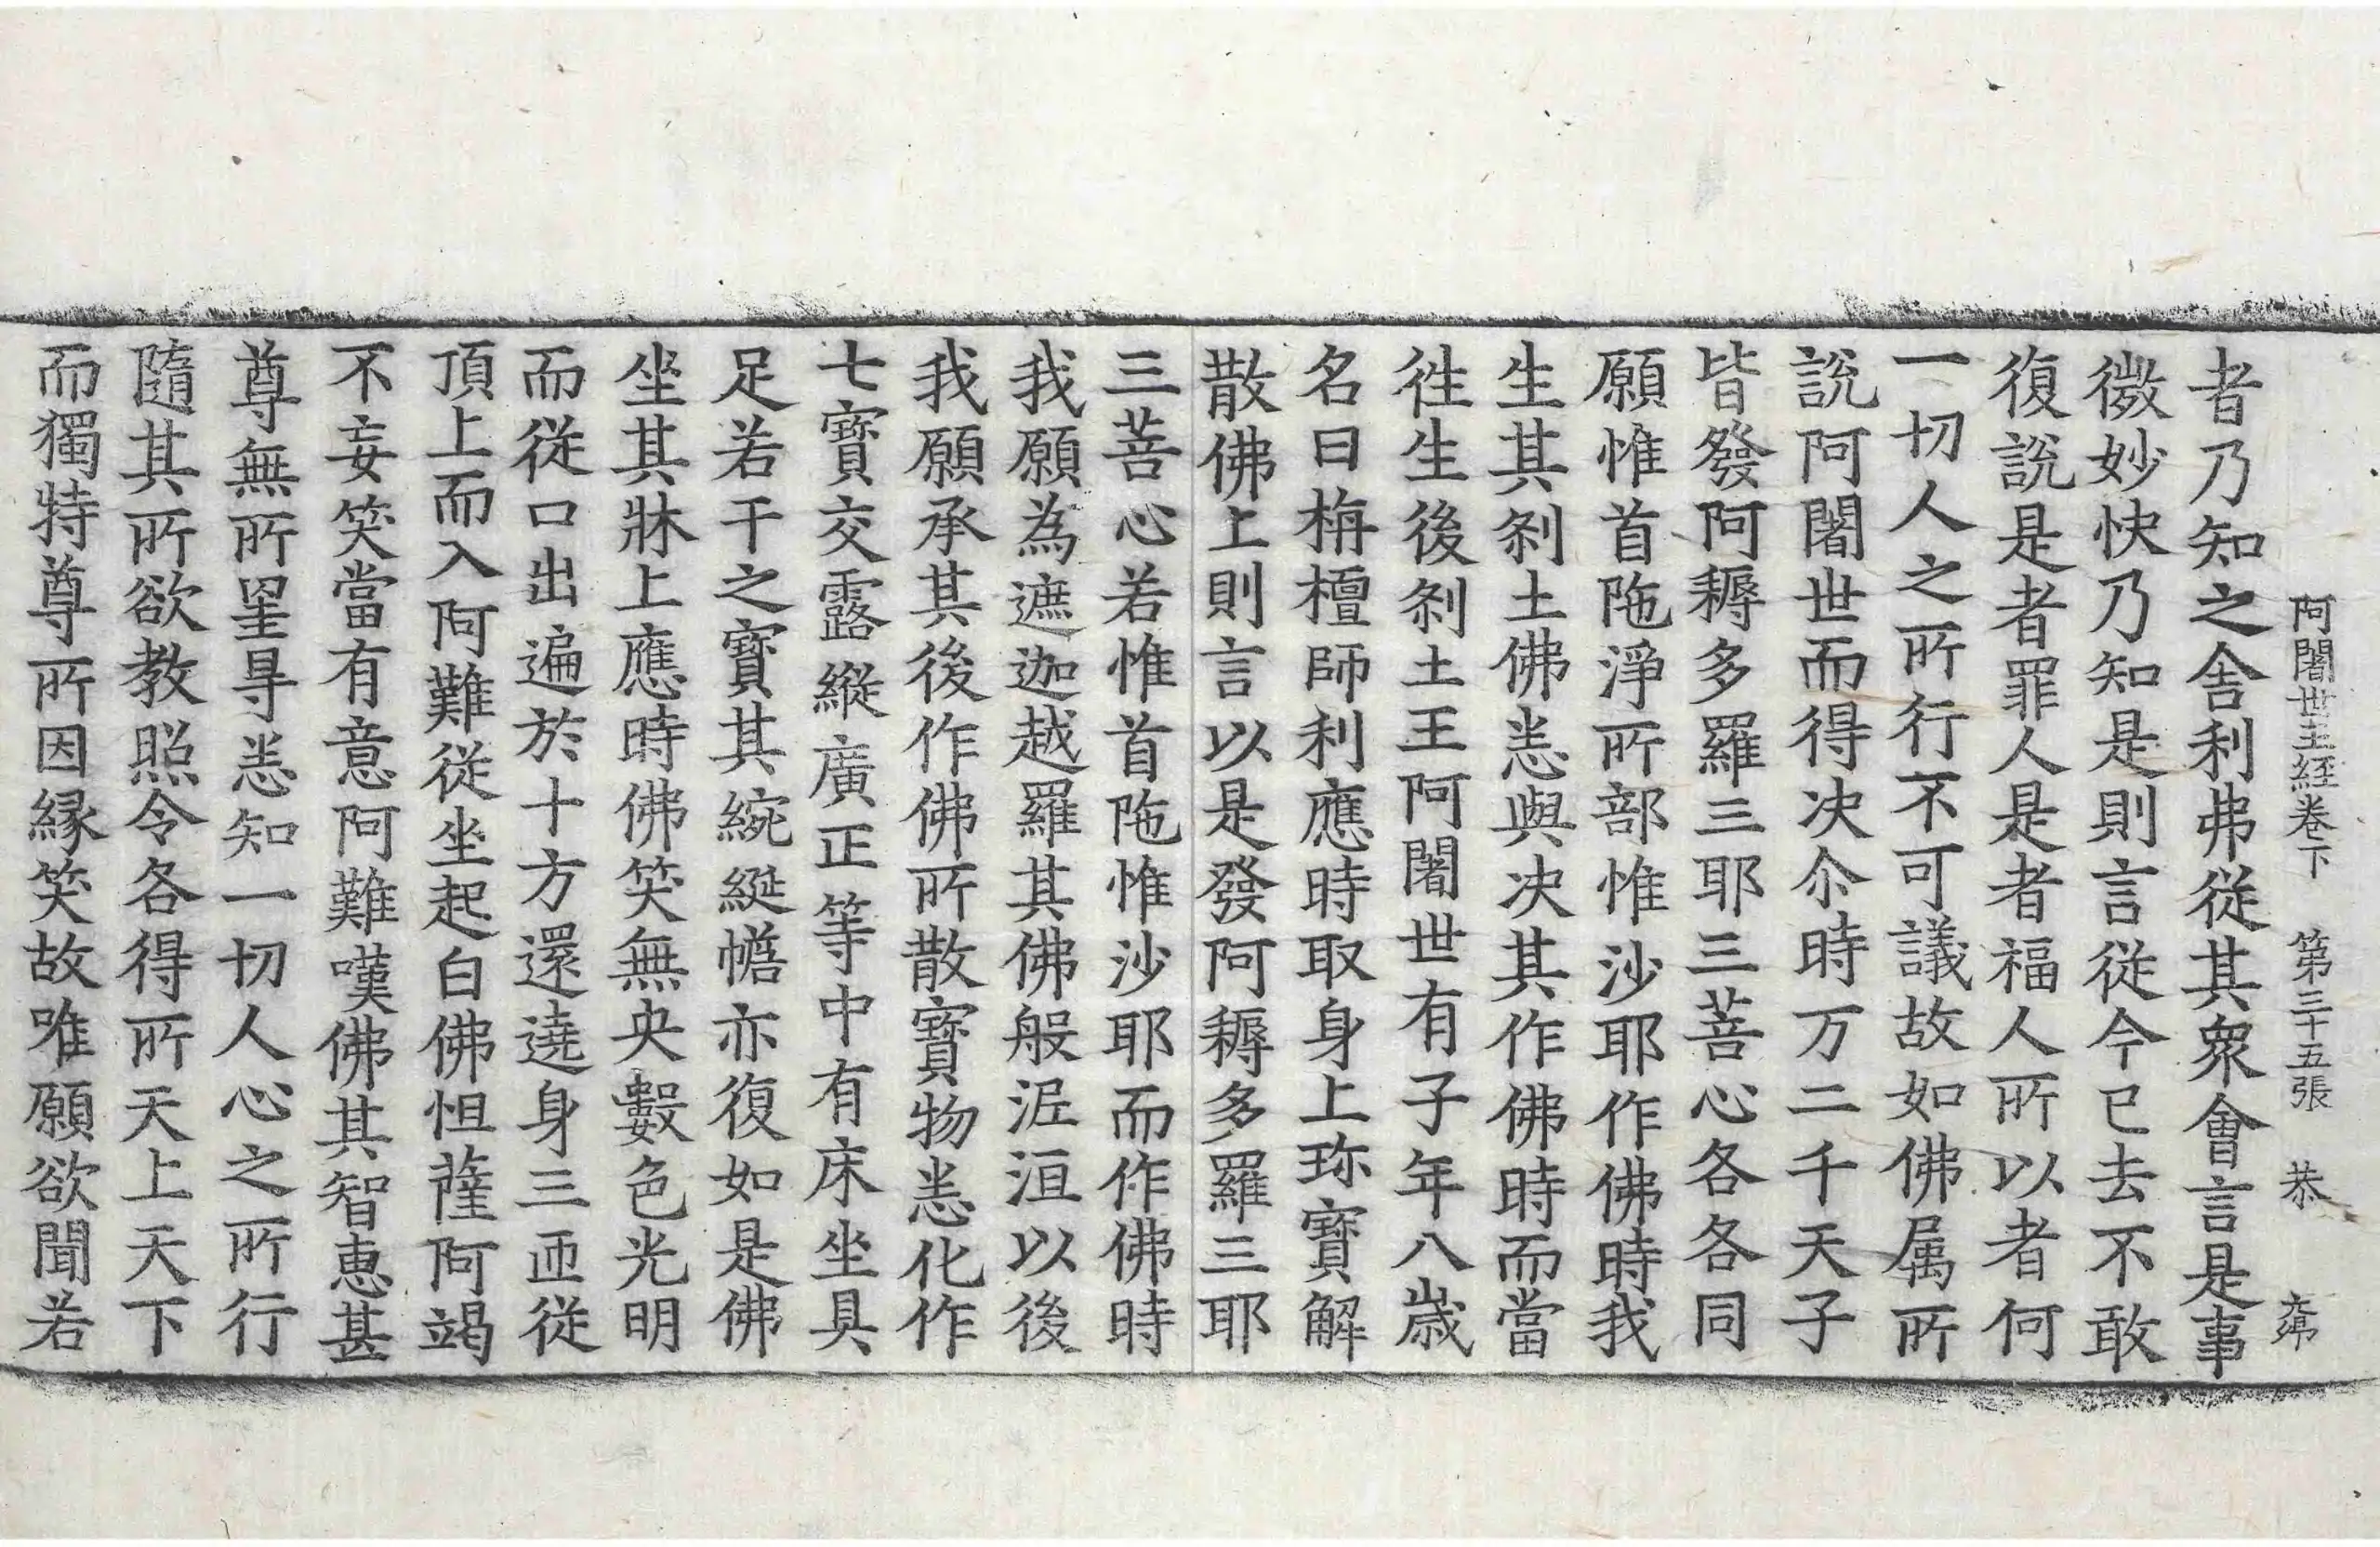 阿闍世王経卷下　第三十五張　恭
者乃知之舎利弗從其衆會言是事
微妙快乃知是則言從今已去不敢
復說是者罪人是者福人所以者何
一切人之所行不可議故如佛属所
說阿闍世而得决尒時万二千天子
皆發阿耨多羅三耶三菩心各各同
願惟首陁淨所部惟沙耶作佛時我
生其刹土佛悉與决其作佛時而當
徃生後刹土王阿闍世有子年八歲
名曰栴檀師利應時取身上珎寶解
散佛上則言以是發阿耨多羅三耶
三菩心若惟首陁惟沙耶而作佛時
我願為遮迦越羅其佛般泥洹以後
我願承其後作佛所散寶物悉化作
七寶交露縱廣正等中有床坐具
足若干之寶其綩綖幨亦復如是佛
坐其牀上應時佛笑無央數色光明
而從口出遍於十方還遶身三匝從
頂上而入阿難從坐起白佛怛薩阿竭
不妄笑當有意阿難嘆佛其智惠甚
尊無所罣㝵悉知一切人心之所行
隨其所欲教照令各得所天上天下
而獨特尊所因縁笑故唯願欲聞若